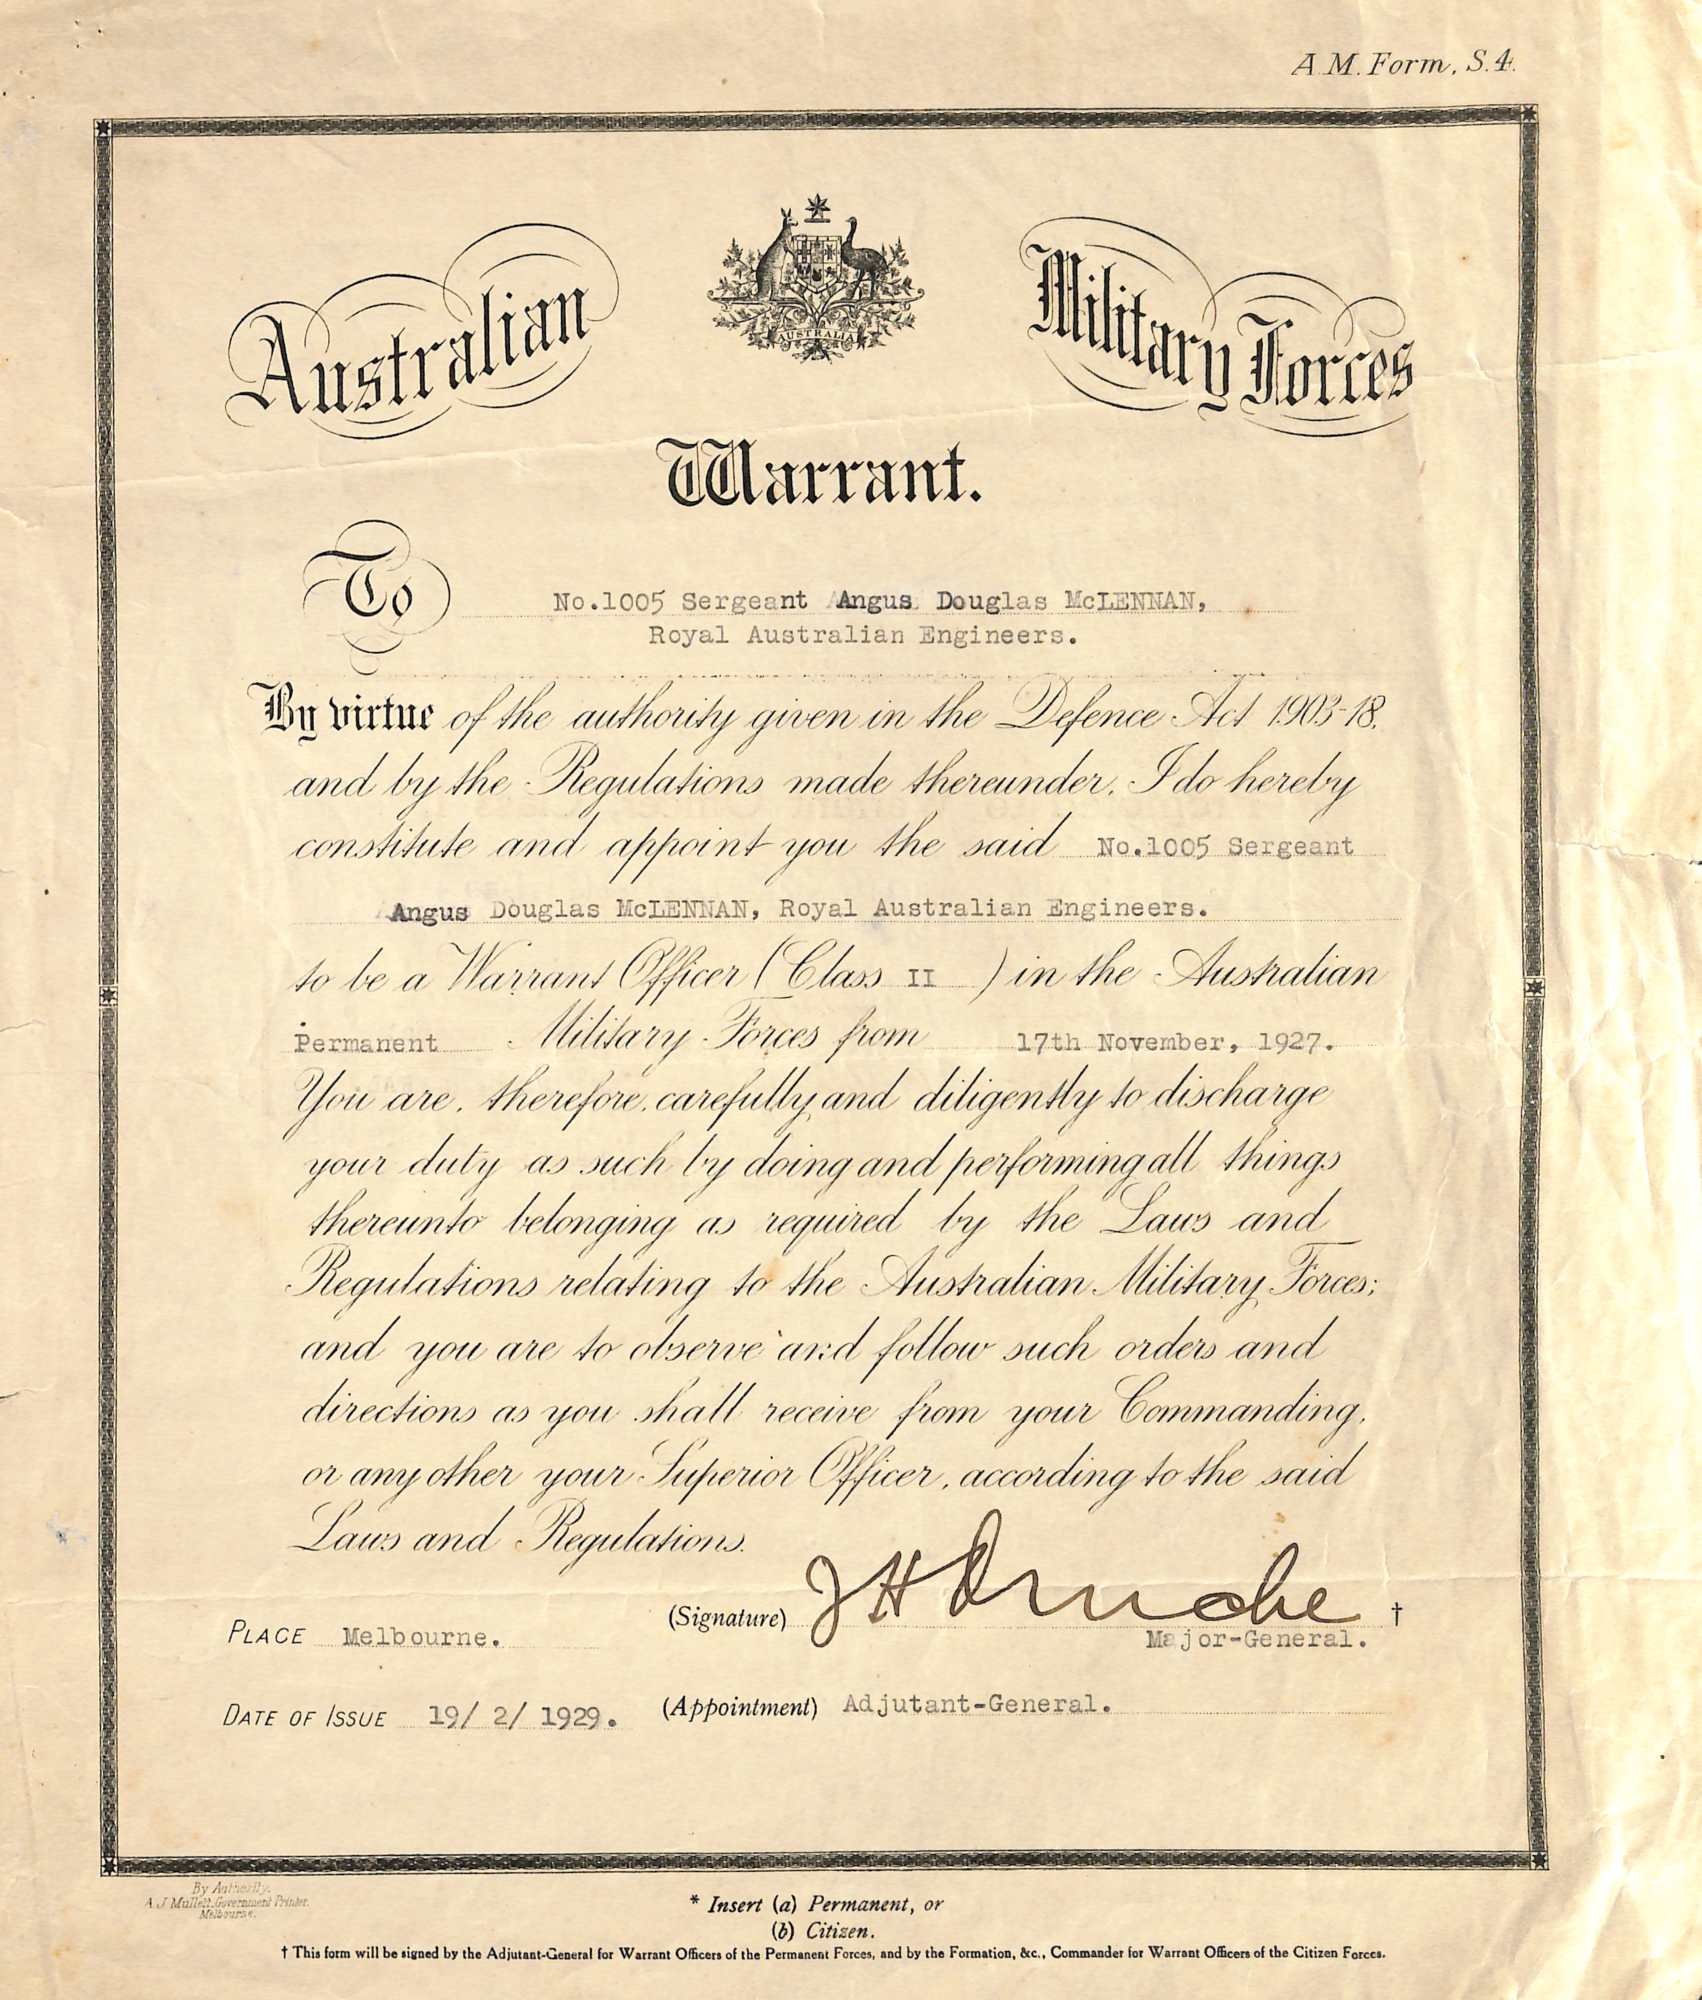 A.M. Form, S.4.
AUSTRALIA
Australian Military Forces
Warrant.
To No.1005 Sergeant Angus Douglas McLENNAN,
Royal Australian Engineers.
By virtue of the authority given in the Defence Act 1903-18,
and by the Regulations made thereunder, I do hereby
constitute and appoint you the said No.1005 Sergeant
Angus Douglas McLENNAN, Royal Australian Engineers.
to be a Warrant Officer (Class II ) in the Australian
Permanent Military Forces from 17th November, 1927.
You are, therefore, carefully and diligently to discharge
your duty as such by doing and performing all things
thereunto belonging as required by the Laws and
Regulations relating to the Australian Military Forces;
and you are to observe and follow such orders and
directions as you shall receive from your Commanding,
or any other your Superior Officer, according to the said
Laws and Regulations.
(Signature) J H †
PLACE Melbourne. Major-General.
DATE OF ISSUE 19/ 2/ 1929. (Appointment) Adjutant-General.
By Authority.
A.J Mullett, Government Printer.
Melbourne.
* Insert (a) Permanent, or
(b) Citizen.
† This form will be signed by the Adjutant-General for Warrant Officers of the Permanent Forces, and by the Formation, &c., Commander for Warrant Officers of the Citizen Forces.